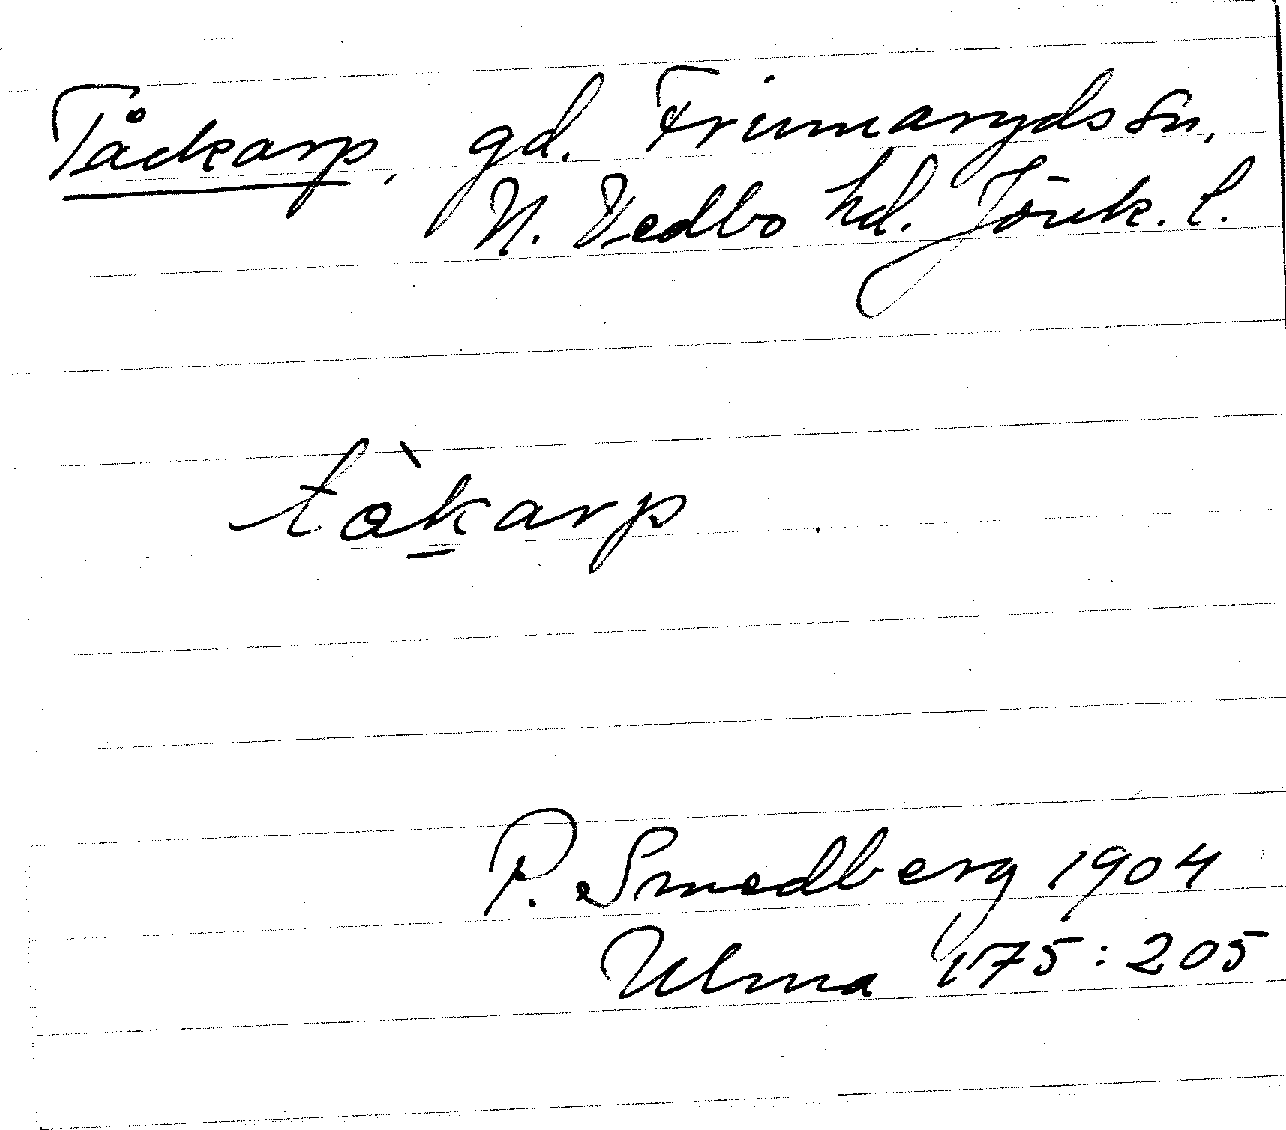 Tåckarp, gd. Frinnaryds sn.
N. Vedbo hd. Jönk. l.
tòkarp
P. Smedberg 1904
Ulma 175:205